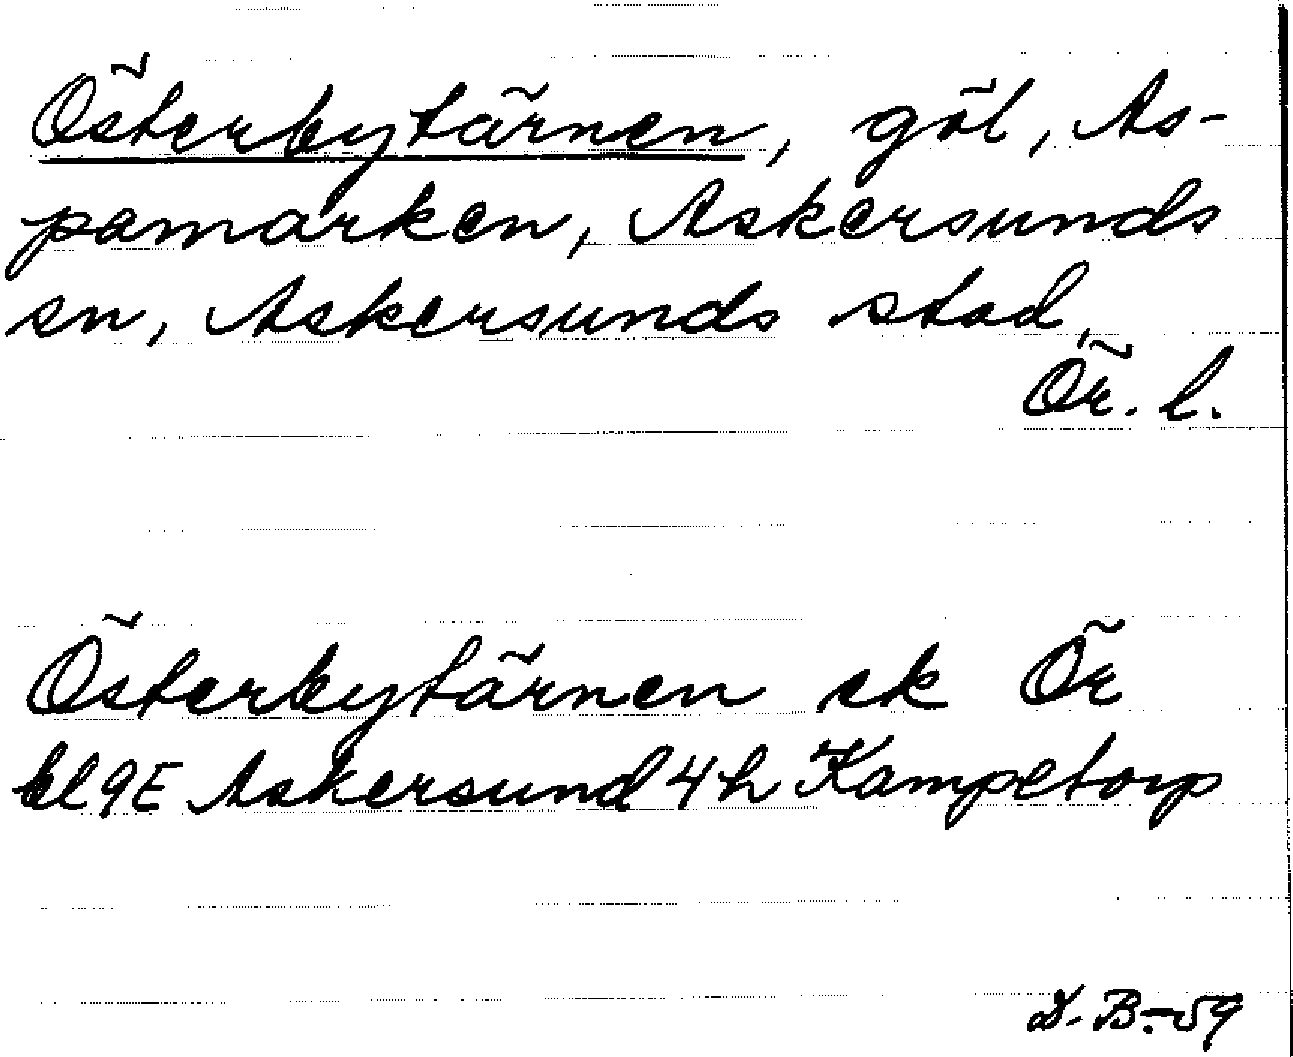 Österbytärnen, göl, As-
pamarken, Askersunds
sn, Askersunds stad,
Ör. l.
Österbytärnen ek Ör
bl 9E Askersund 4h Kampetorp
D. B. -59